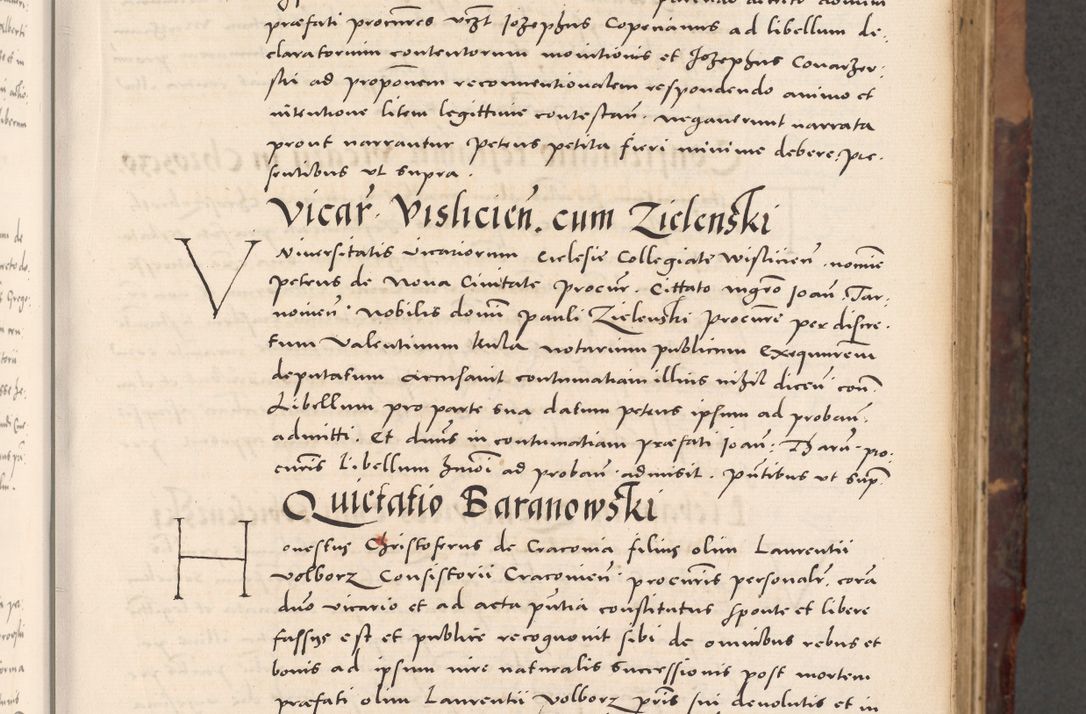 præfati procures vrzt Jozephus Copecianus ad libellum de,
claratorium contentorum monitionis et Jozephus Conarzer,
ski ad proponem reconventionalem respondendo animo et
intentione litem legittime contestan. negaverunt narrata
prout narrantur petens petita fieri minime debere. Pre,
sentibus vt supra.
Vicar. Visliciens. cum Zielenski
Vniversitatis vicariorum Eclesie Collegiate Wislicien. nomie
petrus de Nova Civitate procur. Cittato mgro Joan. Tar,
novien. Nobilis domi pauli Zielenski procure per discre,
tum Valentinum Kula notarium publicum Exequurem
deputatum accusavit contumatiam illius nihil dicen con.
Libellum pro parte sua datum petens ipsum ad proban.
admitti. Et dnus in contumatiam præfati Joan. Tharn. pro,
curis Libellum hmoi ad proban. admisit. Pntibus vt sup.
Quietatio Baranowski
Honestus Christoferus de Cracovia filius olim Laurentii
volborz Consistorii Cracovien. procuris personalr. cora
dno vicario et ad acta pntia constitutus sponte et libere
fassus est et publice recognovit sibi de omnibus rebus et
bonis ad ipsum iure naturalis successionis post mortem
præfati olim Laurentii volborz pris sui devolutis et in